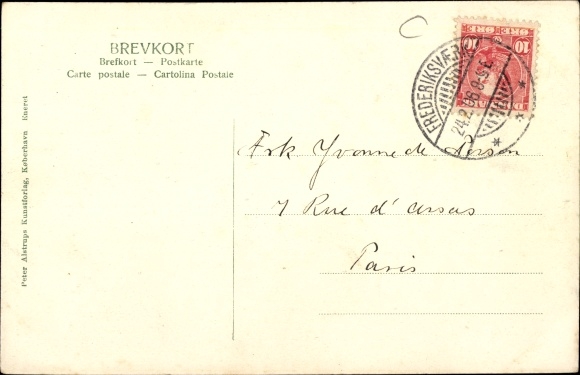 BREVKORT
Brefkort — Postkarte
Carte postale — Cartolina Postale
Peter Alstrups Kunstforlag, København Eneret
10 10
FREDERIKSVÆRK
24.2.06 8-9 E
Frk Yvonne de
7 Rue d'
Paris